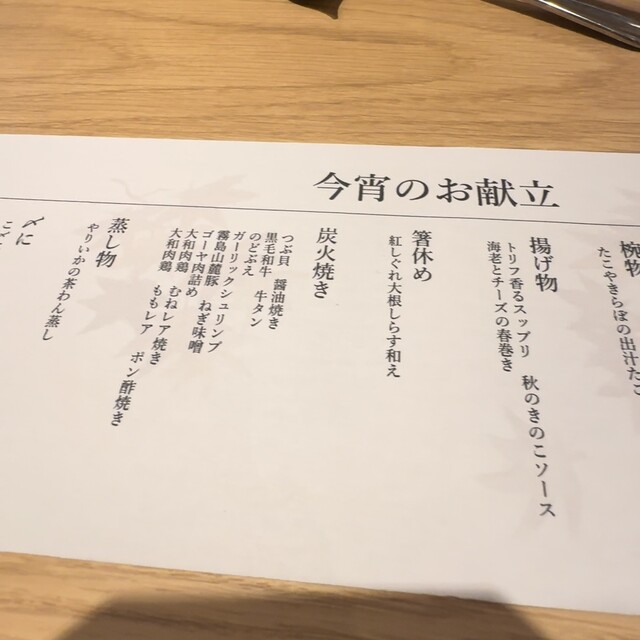 今宵のお献立
椀物
たこやきらぼの出汁たこ
揚げ物
トリフ香るスップリ 秋のきのこソース
海老とチーズの春巻き
箸休め
紅しぐれ大根しらす和え
炭火焼き
つぶ貝 醤油焼き
黒毛和牛 牛タン
のどぶえ
ガーリックシュリンプ
霧島山麓豚 ねぎ味噌
ゴーヤ肉詰め
大和肉鶏 むねレア焼き
大和肉鶏 ももレア ポン酢焼き
蒸し物
やりいかの茶わん蒸し
〆に